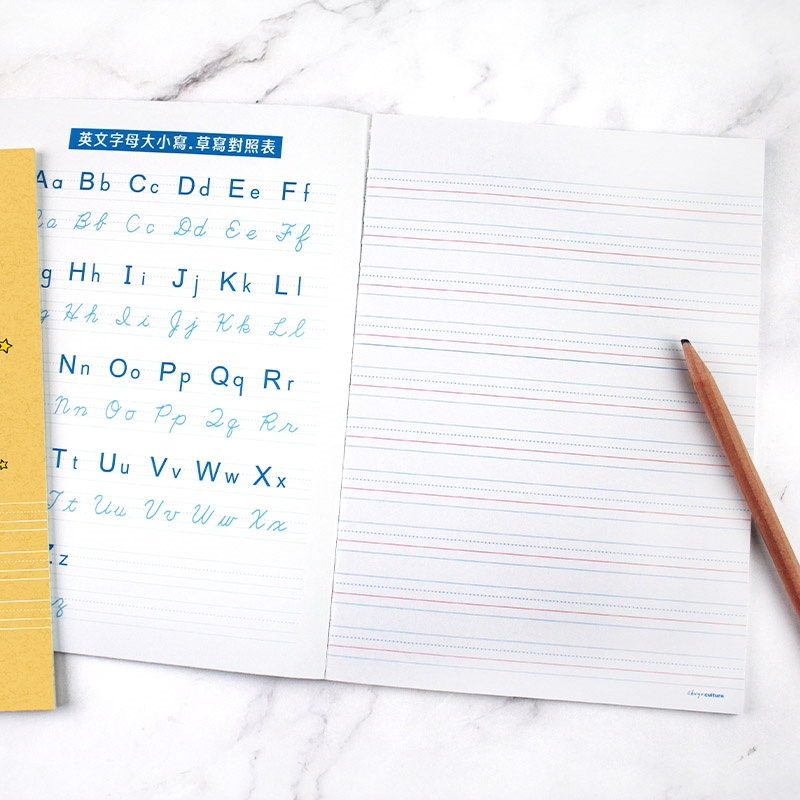 英文字母大小寫.草寫對照表
Aa Bb Cc Dd Ee Ff
a Bb Cc Dd Ee Ff
g Hh Ii Jj Kk Ll
Hh Ii Jj Kk Ll
Nn Oo Pp Qq Rr
Nn Oo Pp Qq Rr
Tt Uu Vv Ww Xx
Tt Uu Vv Ww Xx
Zz
z
culture